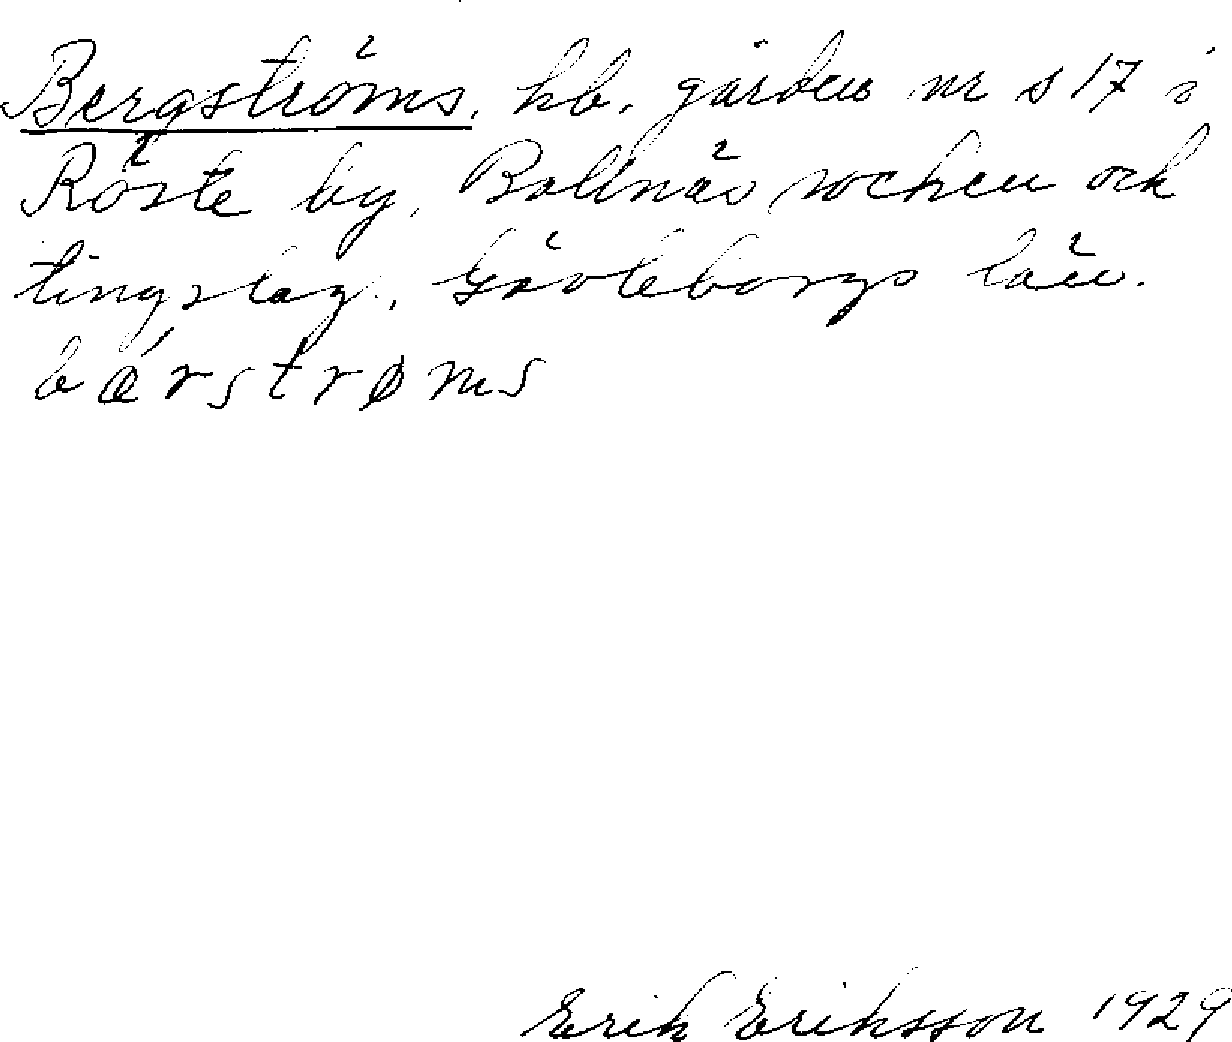 Bergströms, hb. gården nr s 17 i
Röste by, Bollnäs socken och
tingslag, Gävleborgs län.
bǽrstrøms
Erik Eriksson 1929